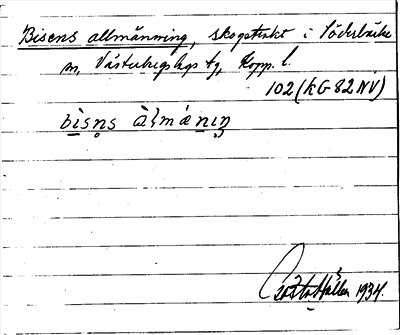 Bisens allmänning, skogstrakt i Söderbärke
sn, Västerbergslags tg, Kopp. l.
102 (KG 82 NV)
bìsns àlmánıŋ
Gösta Hallén 1934.